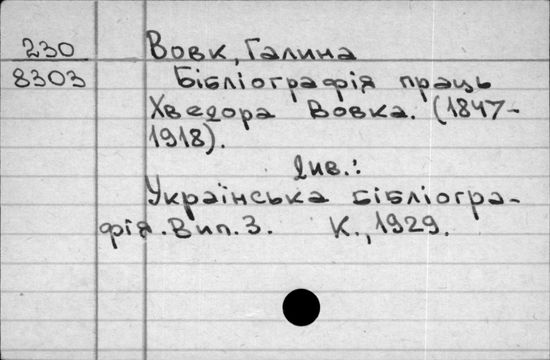 230
8303
Вовк, Галина
Бібліографія праць
Хведора Вовка. (1847-
1918).
Див.:
Українська бібліогра-
фія. Вип. 3. К., 1929.